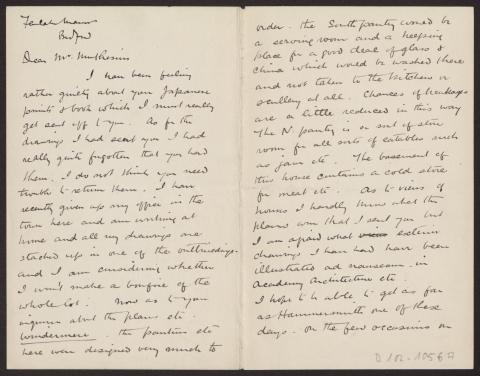 Bedford
Dear Mr Muthesius
I have been feeling
rather guilty about your Japanese
prints & book which I must really
get sent off to you. As for the
drawings I had sent you I had
really quite forgotten that you had
them. I do not think you need
trouble to return them. I have
recently given up my office in the
town here and am working at
home and all my drawings are
stacked up in one of the outbuildings
and I am considering whether
I won't make a bonfire of the
whole lot. Now as to your
inquiries about the plans etc.
Windermere. the pantries etc
here were designed very much to
order. the South pantry would be
a serving room and a keeping
place for a good deal of glass &
china which would be washed there
and not taken to the kitchen or
scullery at all. Chances of breakages
are a little reduced in this way
The N. pantry is a sort of store
room for all sorts of eatables such
as jam etc. The basement of
this house contains a cold store
for meat etc. As to views of
houses I hardly know what the
plans were that I sent you but
I am afraid what exterior
drawings I have had have been
illustrated ad nauseam in
Academy Architecture etc.
I hope to be able to get as far
as Hammersmith one of these
days. On the few occasions on
D 102-1056 A